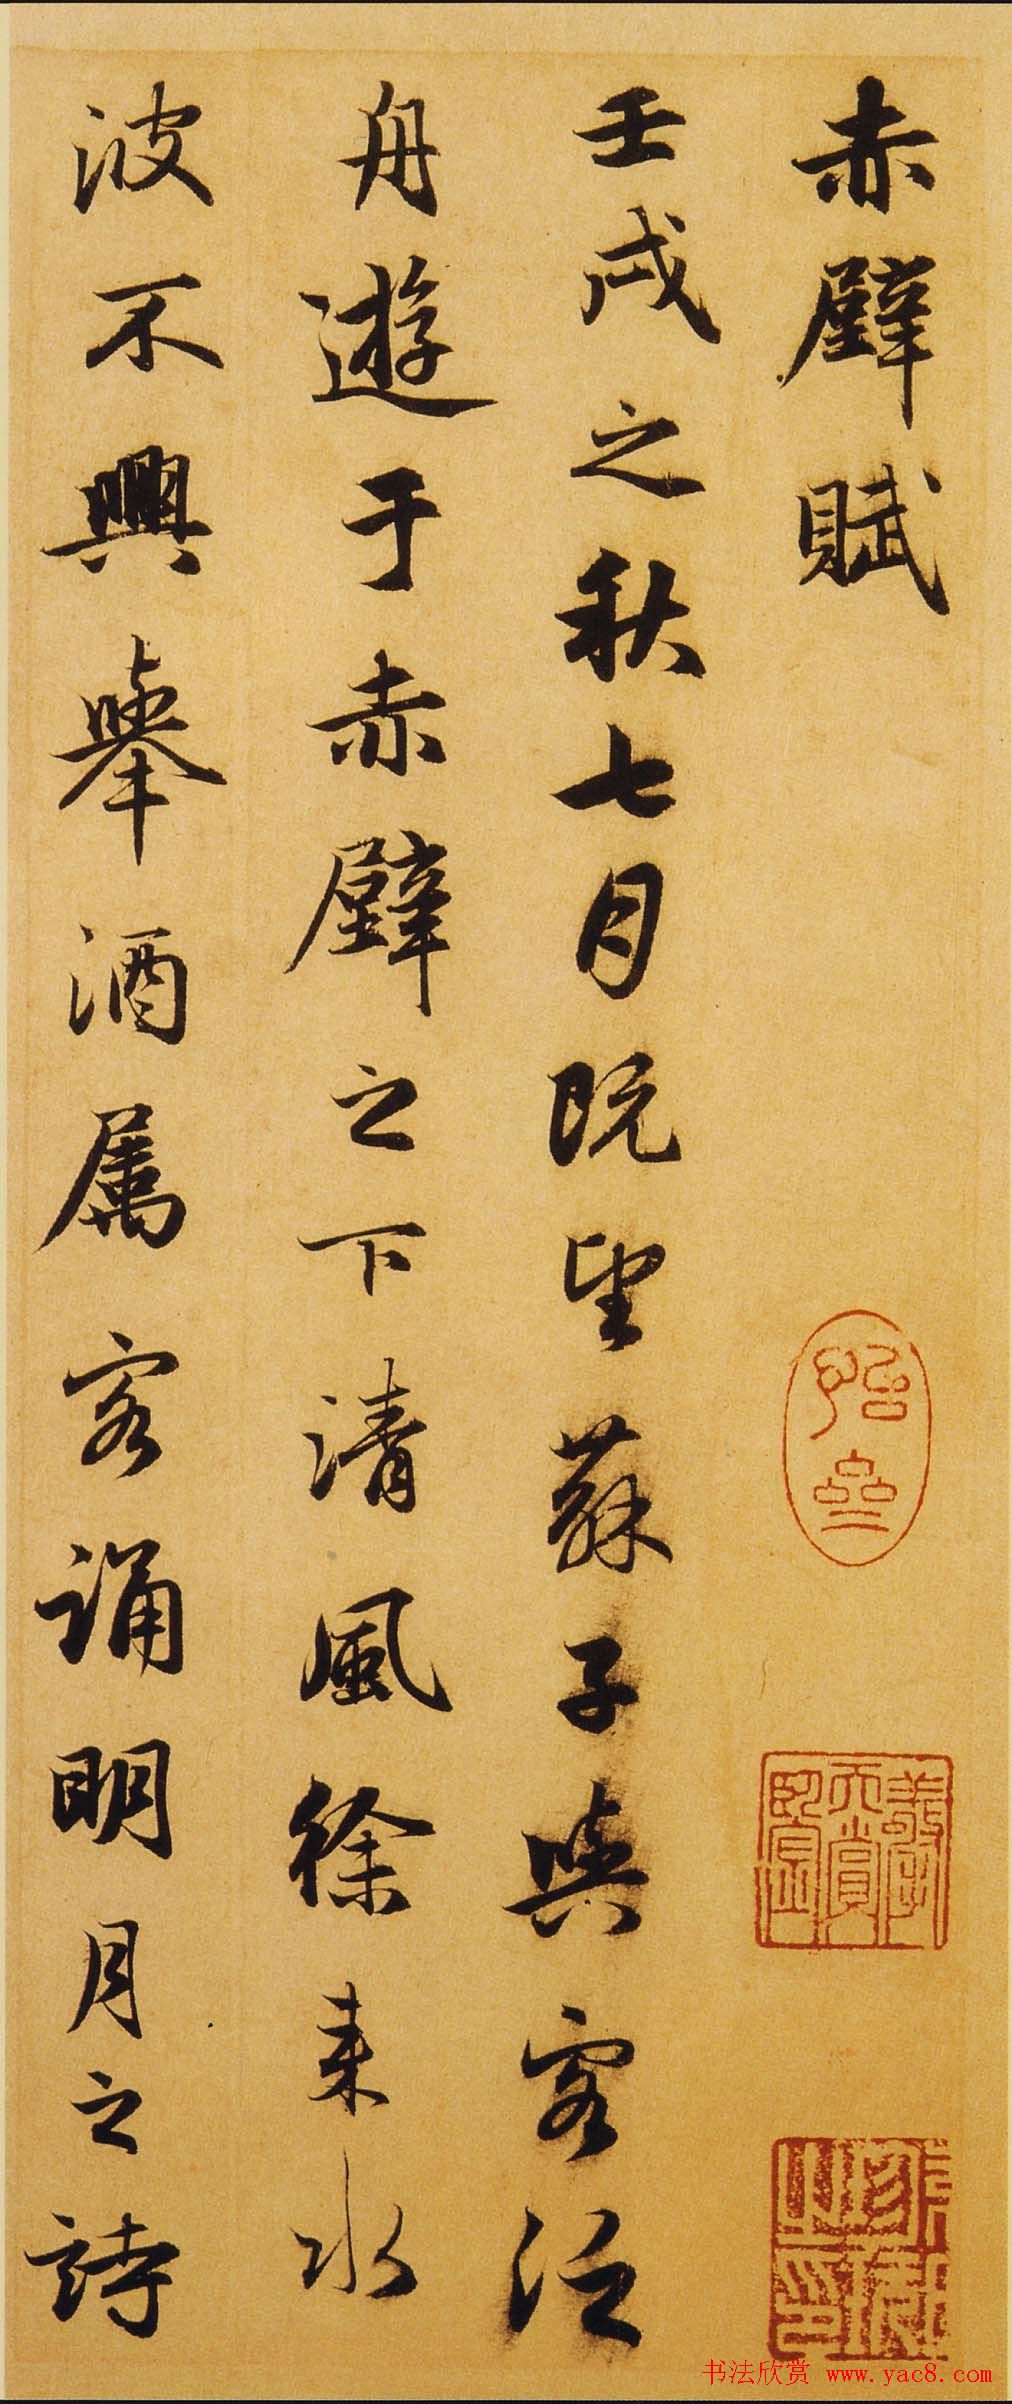 赤壁賦
壬戌之秋七月既望蘇子與客泛
舟遊于赤壁之下清風徐来水
波不興舉酒属客誦明月之詩
书法欣赏 www.yac8.com